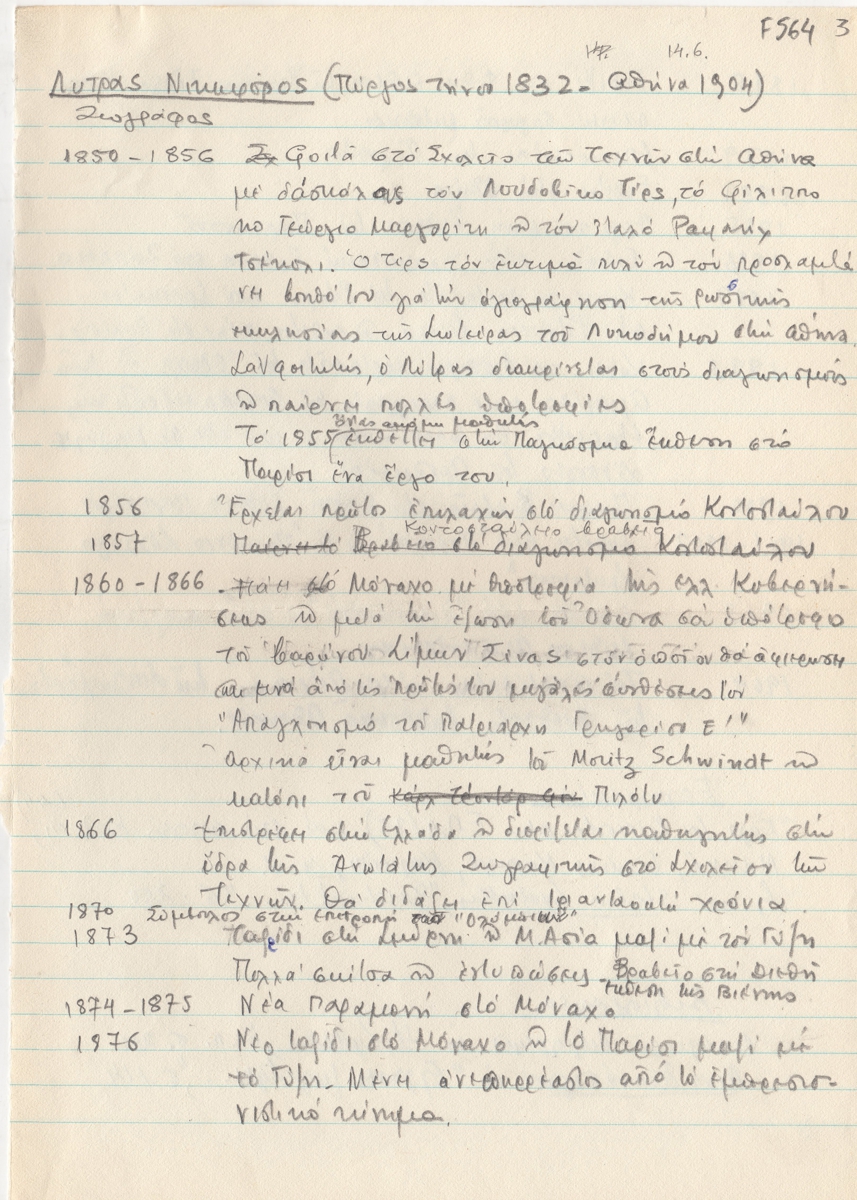 F564 3
14.6.
Λυτρας Νικηφόρος (Πύργος Τήνου 1832 - Αθήνα 1904)
Ζωγράφος
1850 - 1856 Φοιτά στό Σχολείο των Τεχνών στην Αθήνα
με δάσκαλους τον Λουδοβίκο Τίρς, τό Φίλιππο
κο Γεώργιο Μαργαρίτη κ τόν Ιταλό Ραφαήλ
Τσέκολι. Ὁ Τιρς τόν ἐκτιμά πολύ κ τον προσλαμβά
νει βοηθό του γιά τήν ἁγιογράφηση της ρωσικης
εκκλησίας της Σωτείρας του Λυκοδήμου στην Αθήνα.
Σάν φοιτητής, ὁ Λύτρας διακρίνεται στους διαγωνισμούς
κ παίρνει πολλές ὑποτροφίες
ἕνας από μαθητής
Τό 1855 ἐκθέτει στην Παγκόσμια Ἔκθεση στό
Παρίσι ἕνα ἔργο του.
1856 Ἔρχεται πρώτος ἐπιλαχών στό διαγωνισμό Κοντοσταύλου
Κοντοσταύλειο βραβείο
1857 Παίρνει το Βραβείο στό διαγωνισμο Κοντοσταύλου
1860 - 1866 . Πάει στό Μόναχο με υποτροφία της ελλ Κυβερνή-
σεως κ μετά την ἔξωση του Ὄθωνα σάν ὑπότροφο
του βαρώνου Σίμων Σίνας στόν ὁποῖον θά ἀφιερώση
και μιά από τις πρώτες του μεγάλες συνθέσεις τον
"Απαγχονισμό του Πατριάρχη Γρηγορίου Ε'"
αρχικά είναι μαθητής του Moritz Schwindt κ
κατόπι του Καρλ Τέοντορ φόν Πιλότυ
1866 Επιστρέφει στην Ελλάδα κ διορίζεται καθηγητής στην
ἕδρα της Ανωτάτης Ζωγραφικής στό Σχολείον των
Τεχνών. Θά διδάξη επί τριανταοκτώ χρόνια.
1870 Σύμβουλος στην επιτροπή των "Ολυμπίων"
1873 Ταξίδι στη Σμύρνη κ Μ. Ασία μαζί με τον Γύζη
Πολλά σκίτσα κ ἐντυπώσεις - Βραβείο στη Διεθή
ἔκθεση της Βιέννης
1874 - 1875 Νέα Παραμονή στό Μόναχο
1976 Νέο ταξίδι στό Μόναχο κ τό Παρίσι μαζί με
τό Γύζη. Μένει ἀνεπηρέαστος από τό ἐμπρεσιο-
νιστικό κίνημα.